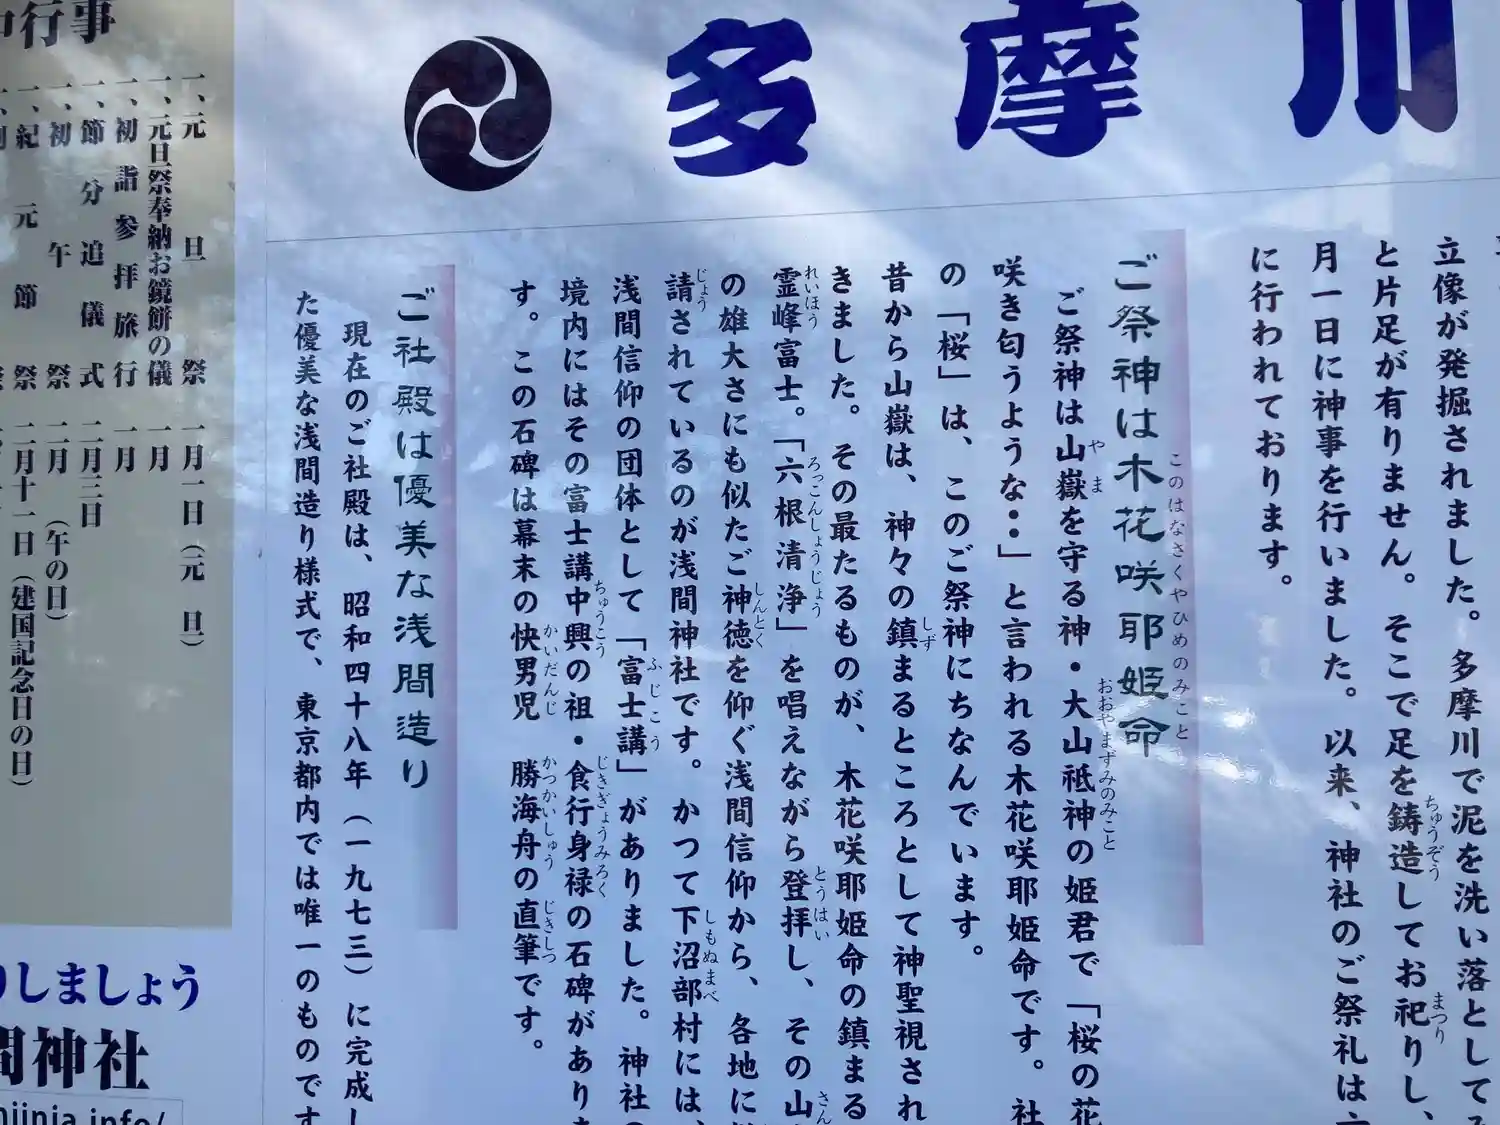 多摩川
立像が発掘されました。多摩川で泥を洗い落としてみ
と片足が有りません。そこで足を鋳造してお祀りし、
ちゅうぞう
まつり
月一日に神事を行いました。以来、神社のご祭礼は六
に行われております。
ご祭神は木花咲耶姫命
このはなさくやひめのみこと
ご祭神は山嶽を守る神・大山祗神の姫君で「桜の花
やま
おおやまずみのみこと
咲き匂うような・・」と言われる木花咲耶姫命です。社
の「桜」は、このご祭神にちなんでいます。
昔から山嶽は、神々の鎮まるところとして神聖視され
しず
きました。その最たるものが、木花咲耶姫命の鎮まる
霊峰富士。「六根清浄」を唱えながら登拝し、その山
れいほう
ろっこんしょうじょう
とうはい
さん
の雄大さにも似たご神徳を仰ぐ浅間信仰から、各地に
しんとく
請されているのが浅間神社です。かつて下沼部村には、
じょう
しもぬまべ
浅間信仰の団体として「富士講」がありました。神社の
ふじこう
境内にはその富士講中興の祖・食行身禄の石碑があり
ちゅうこう
じきぎょうみろく
す。この石碑は幕末の快男児 勝海舟の直筆です。
かいだんじ
かつかいしゅう
じきしつ
ご社殿は優美な浅間造り
現在のご社殿は、昭和四十八年(一九七三)に完成し
た優美な浅間造り様式で、東京都内では唯一のものです
行事
一、元旦祭 一月一日(元旦)
一、元旦祭奉納お鏡餅の儀 一月
一、初詣参拝旅行 一月
一、節分追儀式 二月三日
一、初午祭 二月(午の日)
一、紀元節祭 二月十一日(建国記念日の日)
りしましょう
間神社
jinja.info/